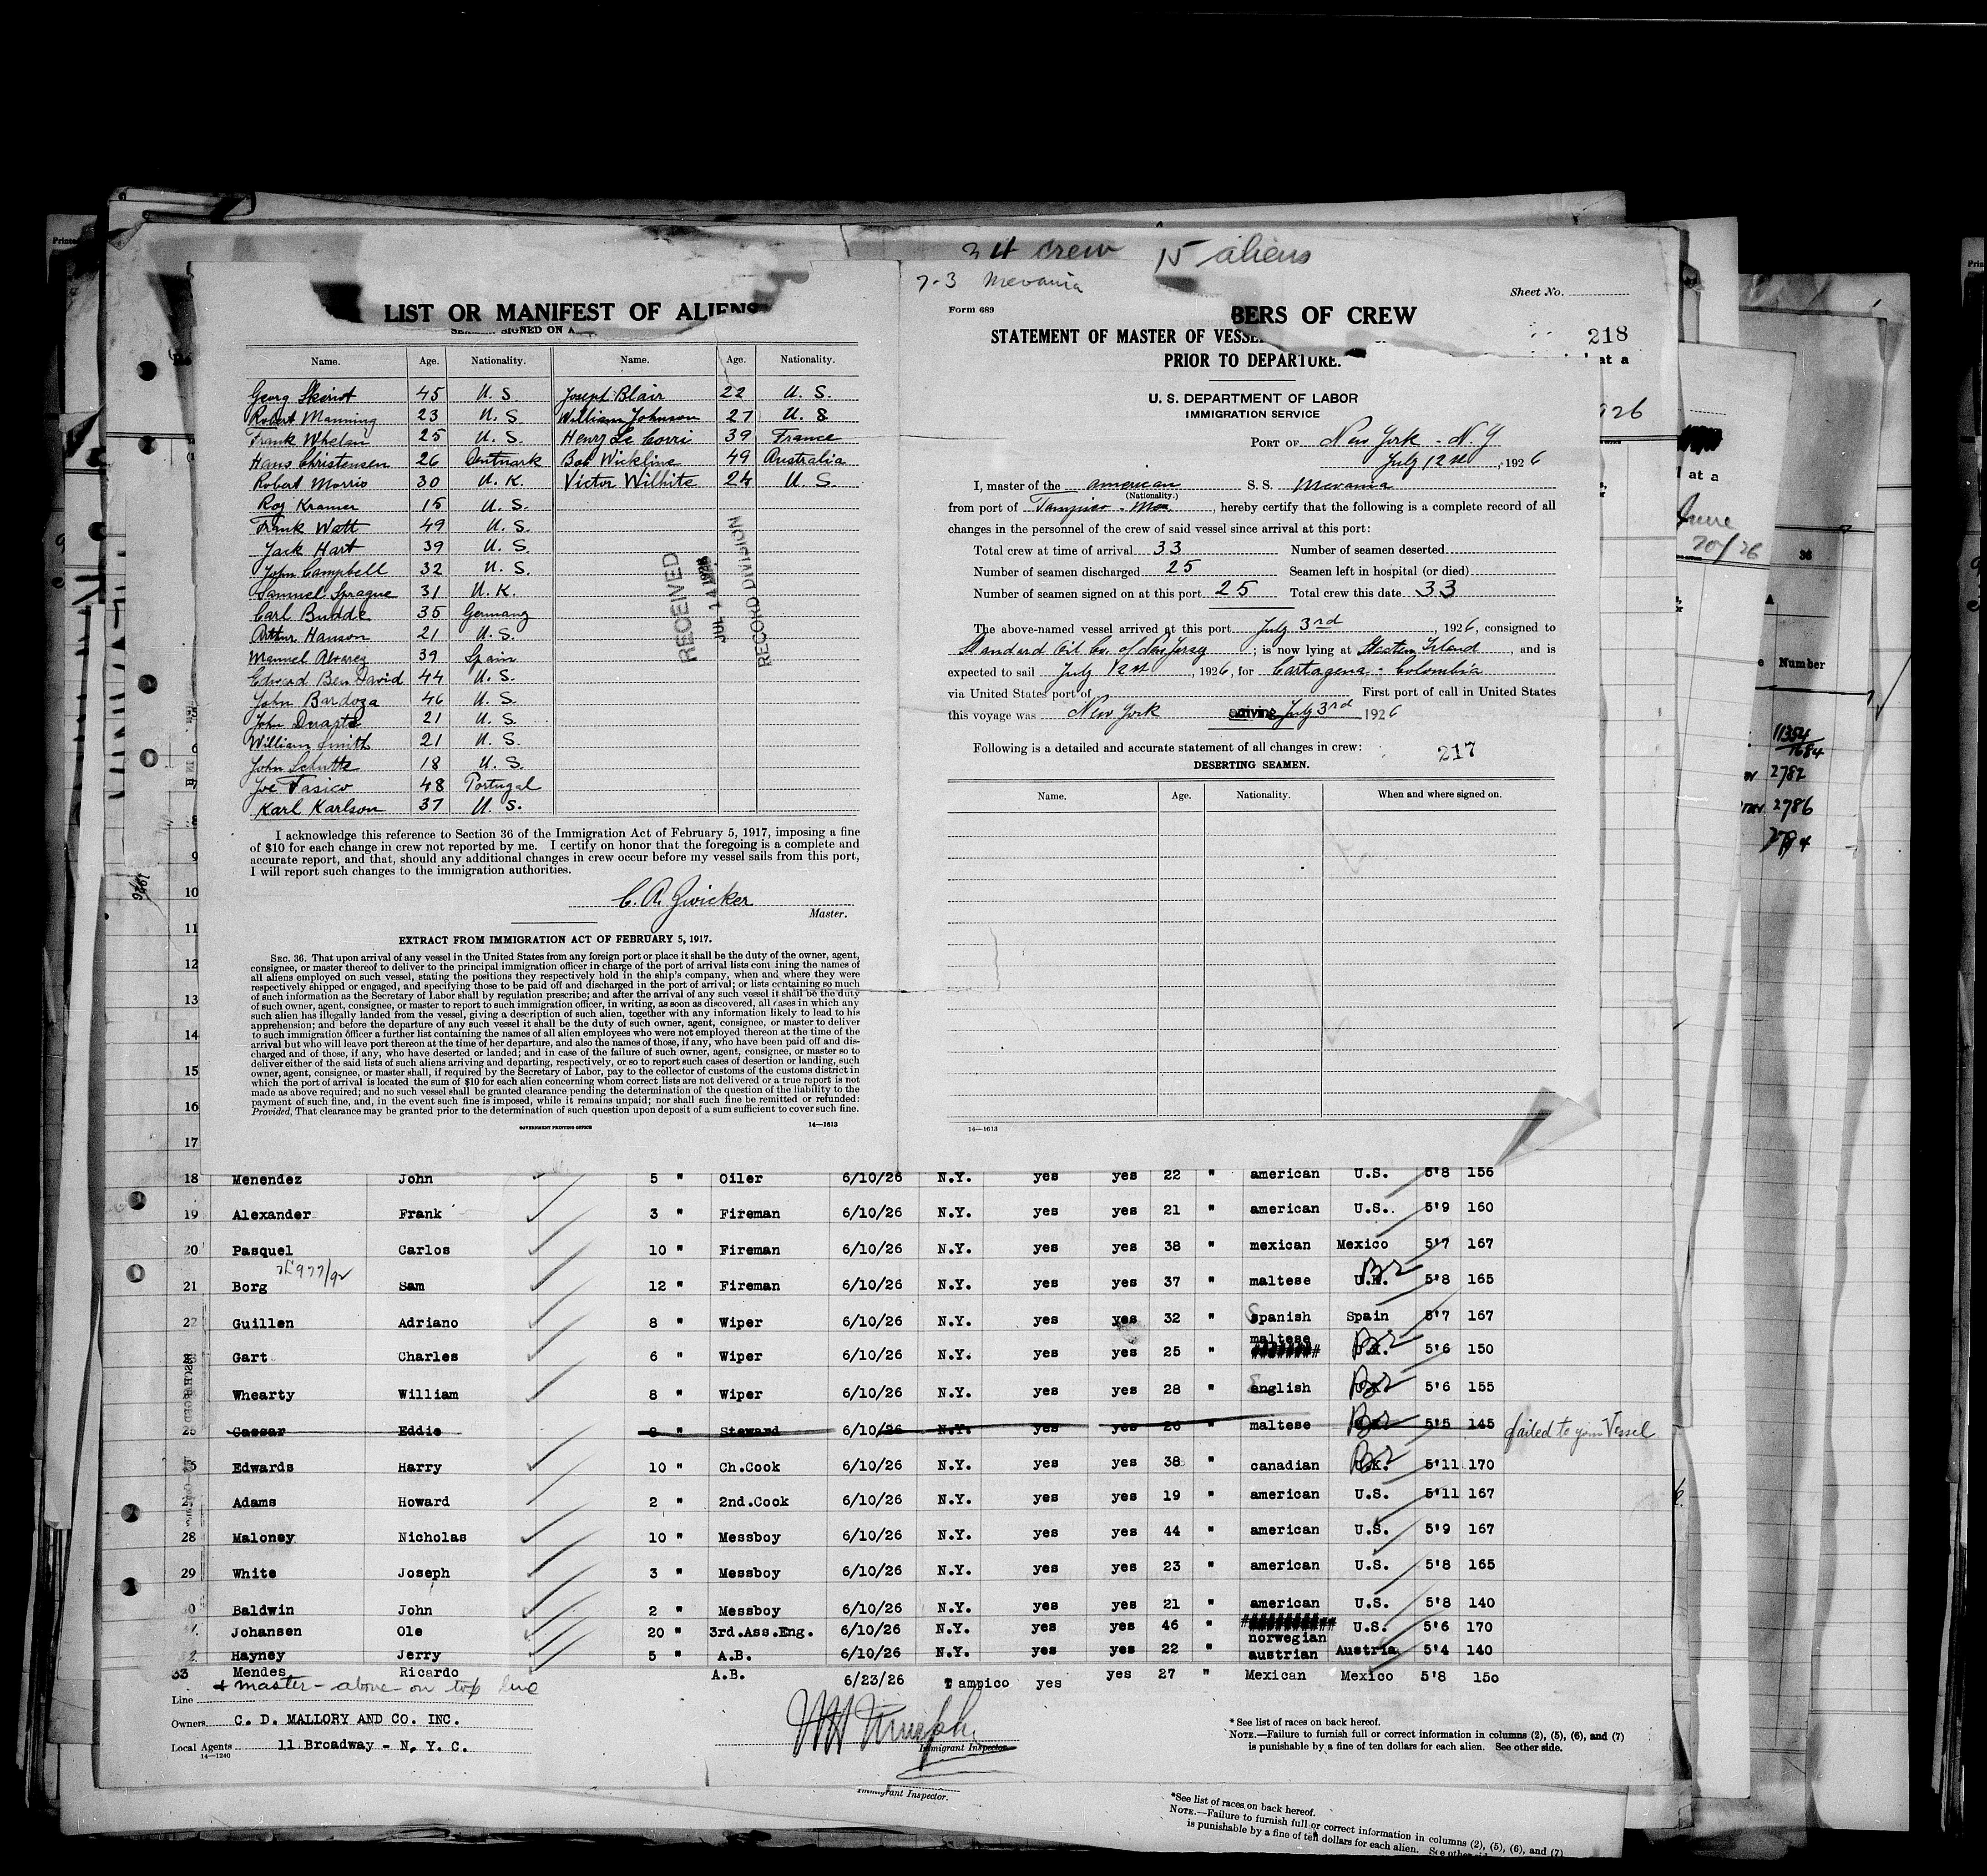 34 crew 15 aliens
7-3 Mevania
LIST OR MANIFEST OF ALIENS
SIGNED ON A
Name. Age. Nationality. Name. Age. Nationality.
Georg Skeriot 45 U. S. Joseph Blair 22 U. S.
Robert Manning 23 U. S. William Johnson 27 U. S
Frank Whelan 25 U. S. Henry Le Corri 39 France
Hans Christensen 26 Dentmark Bob Wickline 49 Australia
Robert Morris 30 U. K. Victor Wilhite 24 U. S.
Roy Kramer 15 U. S.
Frank Watt 49 U. S.
Jack Hart 39 U. S.
John Campbell 32 U. S.
Samuel Sprague 31 U. K.
Carl Budde 35 Germany
Arthur Hanson 21 U. S.
Manuel Alvarez 39 Spain
Edward Ben David 44 U. S.
John Bardoza 46 U. S.
John Duarte 21 U. S.
William Smith 21 U. S.
John Schutte 18 U. S.
Joe Tasico 48 Portugal
Karl Karlson 37 U. S.
RECEIVED
JUL 14 1926
RECORD DIVISION
I acknowledge this reference to Section 36 of the Immigration Act of February 5, 1917, imposing a fine
of $10 for each change in crew not reported by me. I certify on honor that the foregoing is a complete and
accurate report, and that, should any additional changes in crew occur before my vessel sails from this port,
I will report such changes to the immigration authorities.
C. A. Zwicker
Master.
EXTRACT FROM IMMIGRATION ACT OF FEBRUARY 5, 1917.
SEC. 36. That upon arrival of any vessel in the United States from any foreign port or place it shall be the duty of the owner, agent,
consignee, or master thereof to deliver to the principal immigration officer in charge of the port of arrival lists containing the names of
all aliens employed on such vessel, stating the positions they respectively hold in the ship's company, when and where they were
respectively shipped or engaged, and specifying those to be paid off and discharged in the port of arrival; or lists containing so much
of such information as the Secretary of Labor shall by regulation prescribe; and after the arrival of any such vessel it shall be the duty
of such owner, agent, consignee, or master to report to such immigration officer, in writing, as soon as discovered, all cases in which any
such alien has illegally landed from the vessel, giving a description of such alien, together with any information likely to lead to his
apprehension; and before the departure of any such vessel it shall be the duty of such owner, agent, consignee, or master to deliver
to such immigration officer a further list containing the names of all alien employees who were not employed thereon at the time of the
arrival but who will leave port thereon at the time of her departure, and also the names of those, if any, who have been paid off and dis-
charged and of those, if any, who have deserted or landed; and in case of the failure of such owner, agent, consignee, or master so to
deliver either of the said lists of such aliens arriving and departing, respectively, or so to report such cases of desertion or landing, such
owner, agent, consignee, or master shall, if required by the Secretary of Labor, pay to the collector of customs of the customs district in
which the port of arrival is located the sum of $10 for each alien concerning whom correct lists are not delivered or a true report is not
made as above required; and no such vessel shall be granted clearance pending the determination of the question of the liability to the
payment of such fine, and, in the event such fine is imposed, while it remains unpaid; nor shall such fine be remitted or refunded:
Provided, That clearance may be granted prior to the determination of such question upon deposit of a sum sufficient to cover such fine.
GOVERNMENT PRINTING OFFICE 14—1613
Sheet No.
Form 689
BERS OF CREW
218
STATEMENT OF MASTER OF VESSE
at a
PRIOR TO DEPARTURE.
U. S. DEPARTMENT OF LABOR
IMMIGRATION SERVICE
926
PORT OF New York - N. Y
July 12st, 1926
I, master of the american S. S. Mevania
(Nationality.)
from port of Tampico - Mex., hereby certify that the following is a complete record of all
changes in the personnel of the crew of said vessel since arrival at this port:
Total crew at time of arrival 33 Number of seamen deserted
Number of seamen discharged 25 Seamen left in hospital (or died)
Number of seamen signed on at this port 25 Total crew this date 33
The above-named vessel arrived at this port July 3rd, 1926, consigned to
Standard Oil Co. of New Jersey; is now lying at Staten Island, and is
expected to sail July 12st, 1926, for Cartagena - Colombia
via United States port of First port of call in United States
this voyage was New York arriving July 3rd 1926
Following is a detailed and accurate statement of all changes in crew:
217
DESERTING SEAMEN.
Name. Age. Nationality. When and where signed on.
14—1613
at a
June
20/26
36
Number
11354
1684
2782
2786
1926
9
10
11
12
13
14
15
16
17
18 Menendez John 5 " Oiler 6/10/26 N.Y. yes yes 22 " american U.S. 5'8 156
19 Alexander Frank 3 " Fireman 6/10/26 N.Y. yes yes 21 " american U.S. 5'9 160
20 Pasquel Carlos 10 " Fireman 6/10/26 N.Y. yes yes 38 " mexican Mexico 5'7 167
21 Borg Sam 12 " Fireman 6/10/26 N.Y. yes yes 37 " maltese U.K. Br 5'8 165
22 Guillen Adriano 8 " Wiper 6/10/26 N.Y. yes yes 32 " Spanish Spain 5'7 167
Gart Charles 6 " Wiper 6/10/26 N.Y. yes yes 25 " maltese Br 5'6 150
Whearty William 8 " Wiper 6/10/26 N.Y. yes yes 28 " english Br 5'6 155
25 Cassar Eddie 8 " Steward 6/10/26 N.Y. yes yes 26 " maltese Br 5'5 145 failed to join Vessel
Edwards Harry 10 " Ch.Cook 6/10/26 N.Y. yes yes 38 " canadian U.K. Br 5'11 170
Adams Howard 2 " 2nd.Cook 6/10/26 N.Y. yes yes 19 " american U.S. 5'11 167
28 Maloney Nicholas 10 " Messboy 6/10/26 N.Y. yes yes 44 " american U.S. 5'9 167
29 White Joseph 3 " Messboy 6/10/26 N.Y. yes yes 23 " american U.S. 5'8 165
Baldwin John 2 " Messboy 6/10/26 N.Y. yes yes 21 " american U.S. 5'8 140
Johansen Ole 20 " 3rd.Ass.Eng. 6/10/26 N.Y. yes yes 46 " norwegian U.S. 5'6 170
Hayney Jerry 5 " A.B. 6/10/26 N.Y. yes yes 22 " austrian Austria 5'4 140
33 Mendes Ricardo A.B. 6/23/26 Tampico yes yes 27 " Mexican Mexico 5'8 150
+ master - above - on top line
Line
Owners C. D. MALLORY AND CO. INC.
Local Agents 11 Broadway - N. Y. C.
14—1240
Immigrant Inspector.
* See list of races on back hereof.
NOTE.—Failure to furnish full or correct information in columns (2), (5), (6), and (7)
is punishable by a fine of ten dollars for each alien. See other side.
Immigrant Inspector.
*See list of races on back hereof.
NOTE.—Failure to furnish full or correct information in columns (2), (5), (6), and (7)
is punishable by a fine of ten dollars for each alien. See other side.